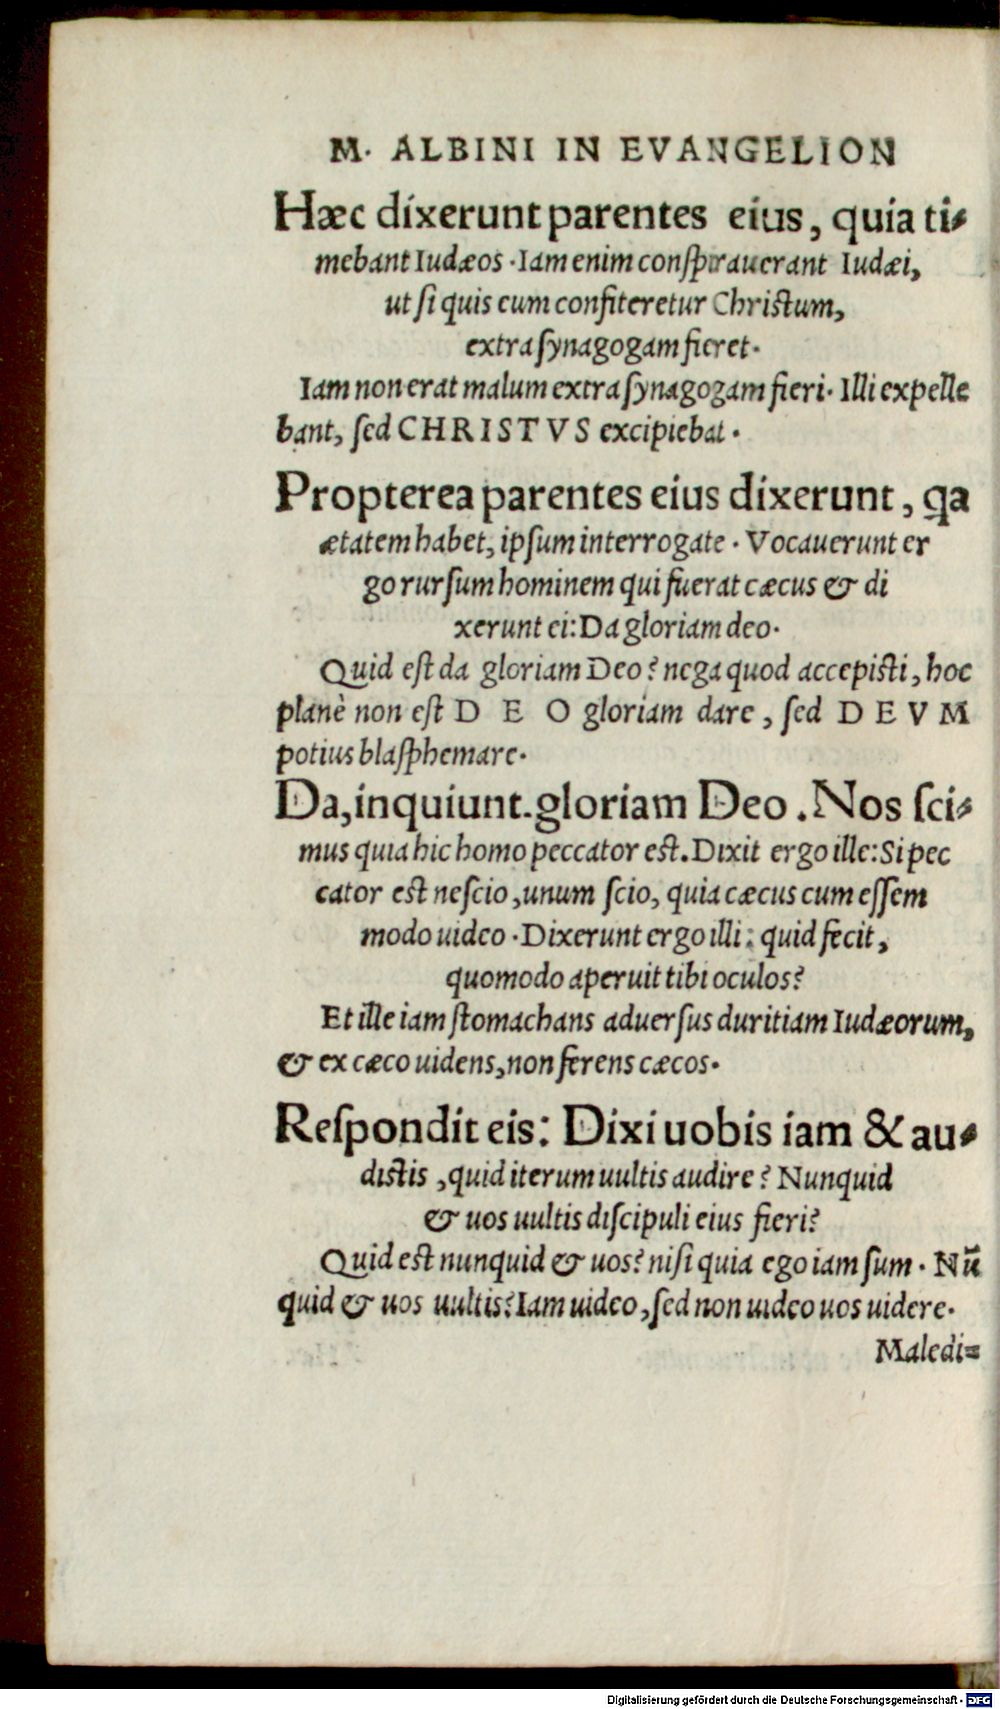 M. ALBINI IN EVANGELION
Hæc dixerunt parentes eius, quia ti-
mebant Iudæos. Iam enim conspirauerant Iudæi,
ut si quis eum confiteretur Christum,
extra synagogam fieret.
Iam non erat malum extra synagogam fieri. Illi expelle
bant, sed CHRISTVS excipiebat.
Propterea parentes eius dixerunt, qa
ætatem habet, ipsum interrogate. Vocauerunt er
go rursum hominem qui fuerat cæcus & di
xerunt ei: Da gloriam deo.
Quid est da gloriam Deo? nega quod accepisti, hoc
planè non est DEO gloriam dare, sed DEVM
potius blasphemare.
Da, inquiunt. gloriam Deo. Nos sci-
mus quia hic homo peccator est. Dixit ergo ille: Si pec
cator est nescio, unum scio, quia cæcus cum essem
modo uideo. Dixerunt ergo illi: quid fecit,
quomodo aperuit tibi oculos?
Et ille iam stomachans aduersus duritiam Iudæorum,
& ex cæco uidens, non ferens cæcos.
Respondit eis: Dixi uobis iam & au-
distis, quid iterum uultis audire? Nunquid
& uos uultis discipuli eius fieri?
Quid est nunquid & uos? nisi quia ego iam sum. Nū
quid & uos uultis? Iam uideo, sed non uideo uos uidere.
Maledi=
Digitalisierung gefördert durch die Deutsche Forschungsgemeinschaft - DFG